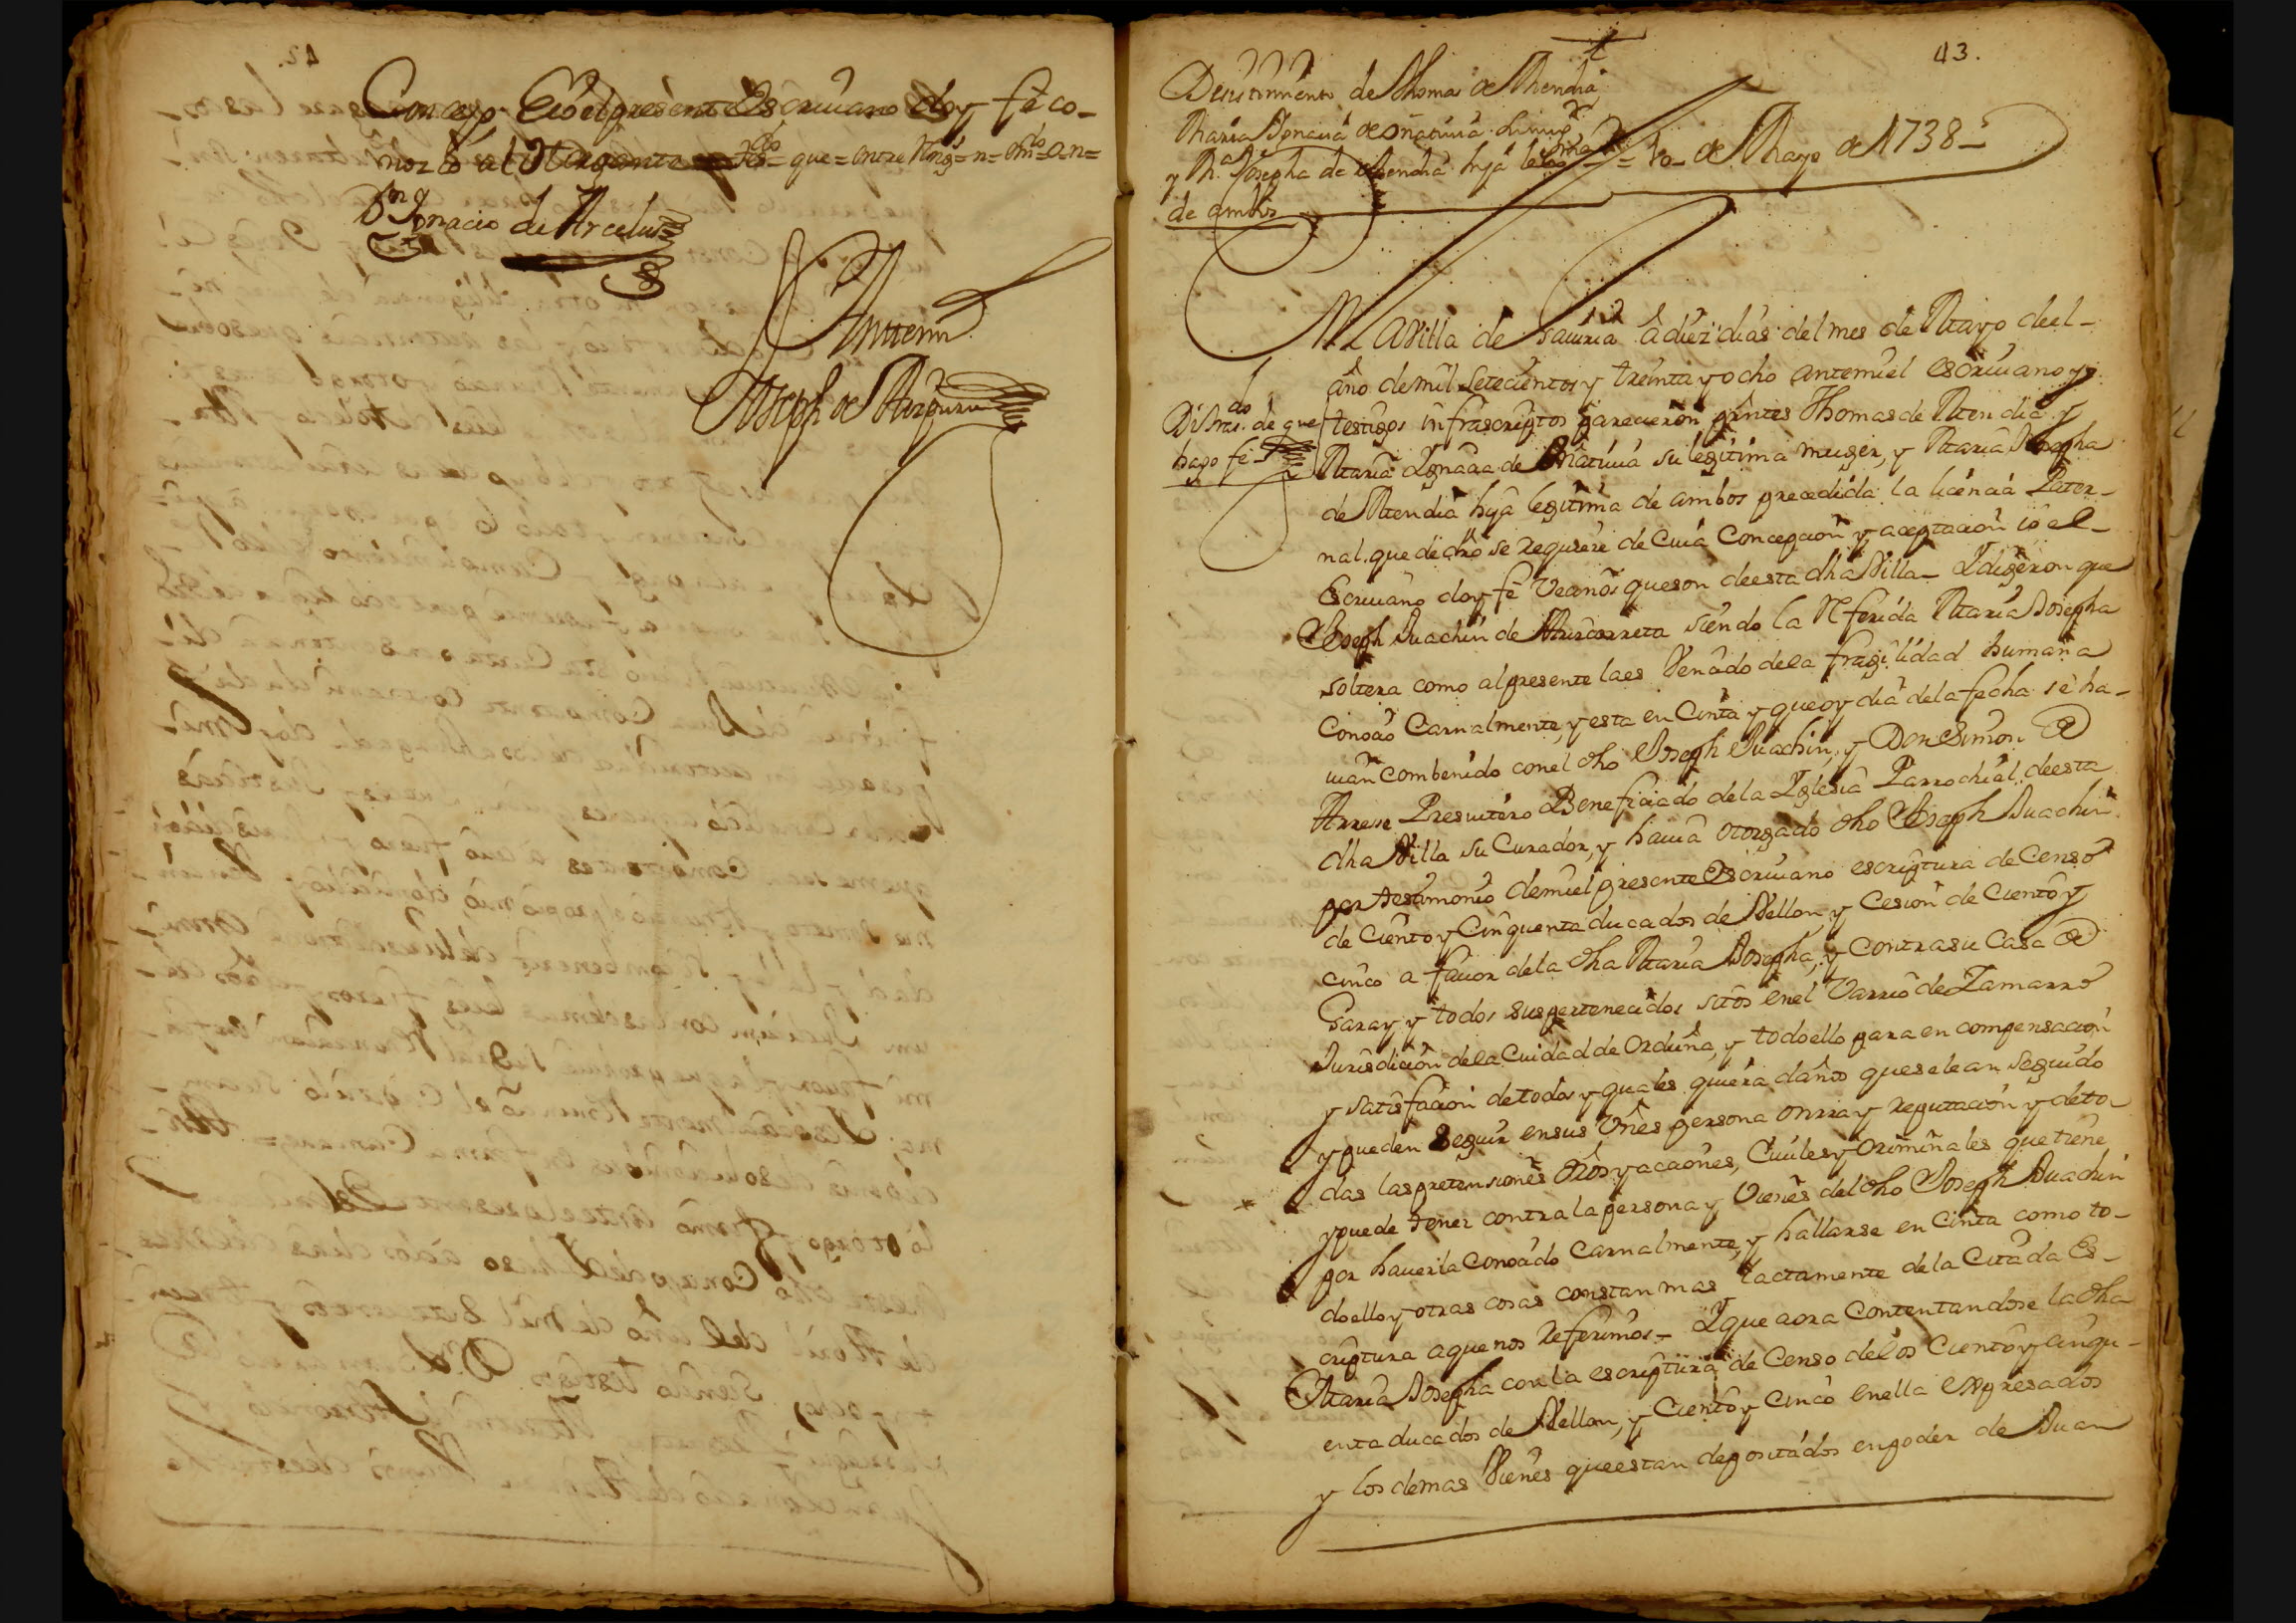 Concejo Eio el presente Escriuano doy fê co-
nozco al Otorgante = que = entre Rengs = n = em.do = o = n =
Dn Ignacio de Arcelus
Antemi
Joseph de Aizpuru
43.
Desistimiento de Thomas de Mendia
Maria Ignacia de Oñatiuia su mugr
y Ma Josepha de Mendia hija lexma = 10 - de Mayo de 1738 -
de ambos
Di tras.do de que
hago fe
En la Villa de Gauiria â diez dias del mes de Mayo deel-
año de mil Setecientos y treinta y ocho antemi el escriuano y
testigos infrascriptos parecieron presentes Thomas de Mendia y
Maria Ignacia de Oñatiuia su legitima muger, y Maria Josepha
de Mendia hija legitima de ambos precedida la licencia Pater-
nal que de dro se requiere de Cuia Concepcion y aceptacion io el-
Escriuano doy fê Vecinos que son de esta dha Villa - Y digeron que
Joseph Juachin de siendo la Referida Maria Josepha
soltera como al presente la es Vencido de la fragilidad humana
Conocio Carnalmente, y esta en Cinta y que oy dia de la fecha se ha-
uian combenido con el dho Joseph Juachin, y Don Simon de
Arrese Presuitero Beneficiado de la Yglesia Parrochial de esta
dha Villa su Curador, y hauia otorgado dho Joseph Juachin
por testimonio de mi el presente Escriuano escriptura de Censo
de Ciento y Cinquenta ducados de Vellon y Cesion de Ciento y
cinco a fauor de la dha Maria Josepha, y contra su Casa de
Garay y todos sus pertenecidos sitos en el Varrio de Zamarro
Jurisdicion de la Ciudad de Orduña, y todo ello para en compensacion
y satisfacion de todos y quales quiera daños que se le an seguido
y pueden seguir en sus Vnes persona onrra y reputacion y de to-
das las pretensiones dros y acciones, Ciuiles y Criminales que tiene
y puede tener contra la persona y Vienes del dho Joseph Juachin
por hauerla Conocido Carnalmente, y hallarse en Cinta como to-
do ello y otras cosas constan mas lactamente de la Citada Es-
criptura a que nos Referimos - Y que aora Contentandose la dha
Maria Josepha con la escriptura de Censo de los Ciento y cinqu-
enta ducados de Vellon, y Ciento y Cinco en ella expresados
y los demas Vienes que estan depositados en poder de Juan